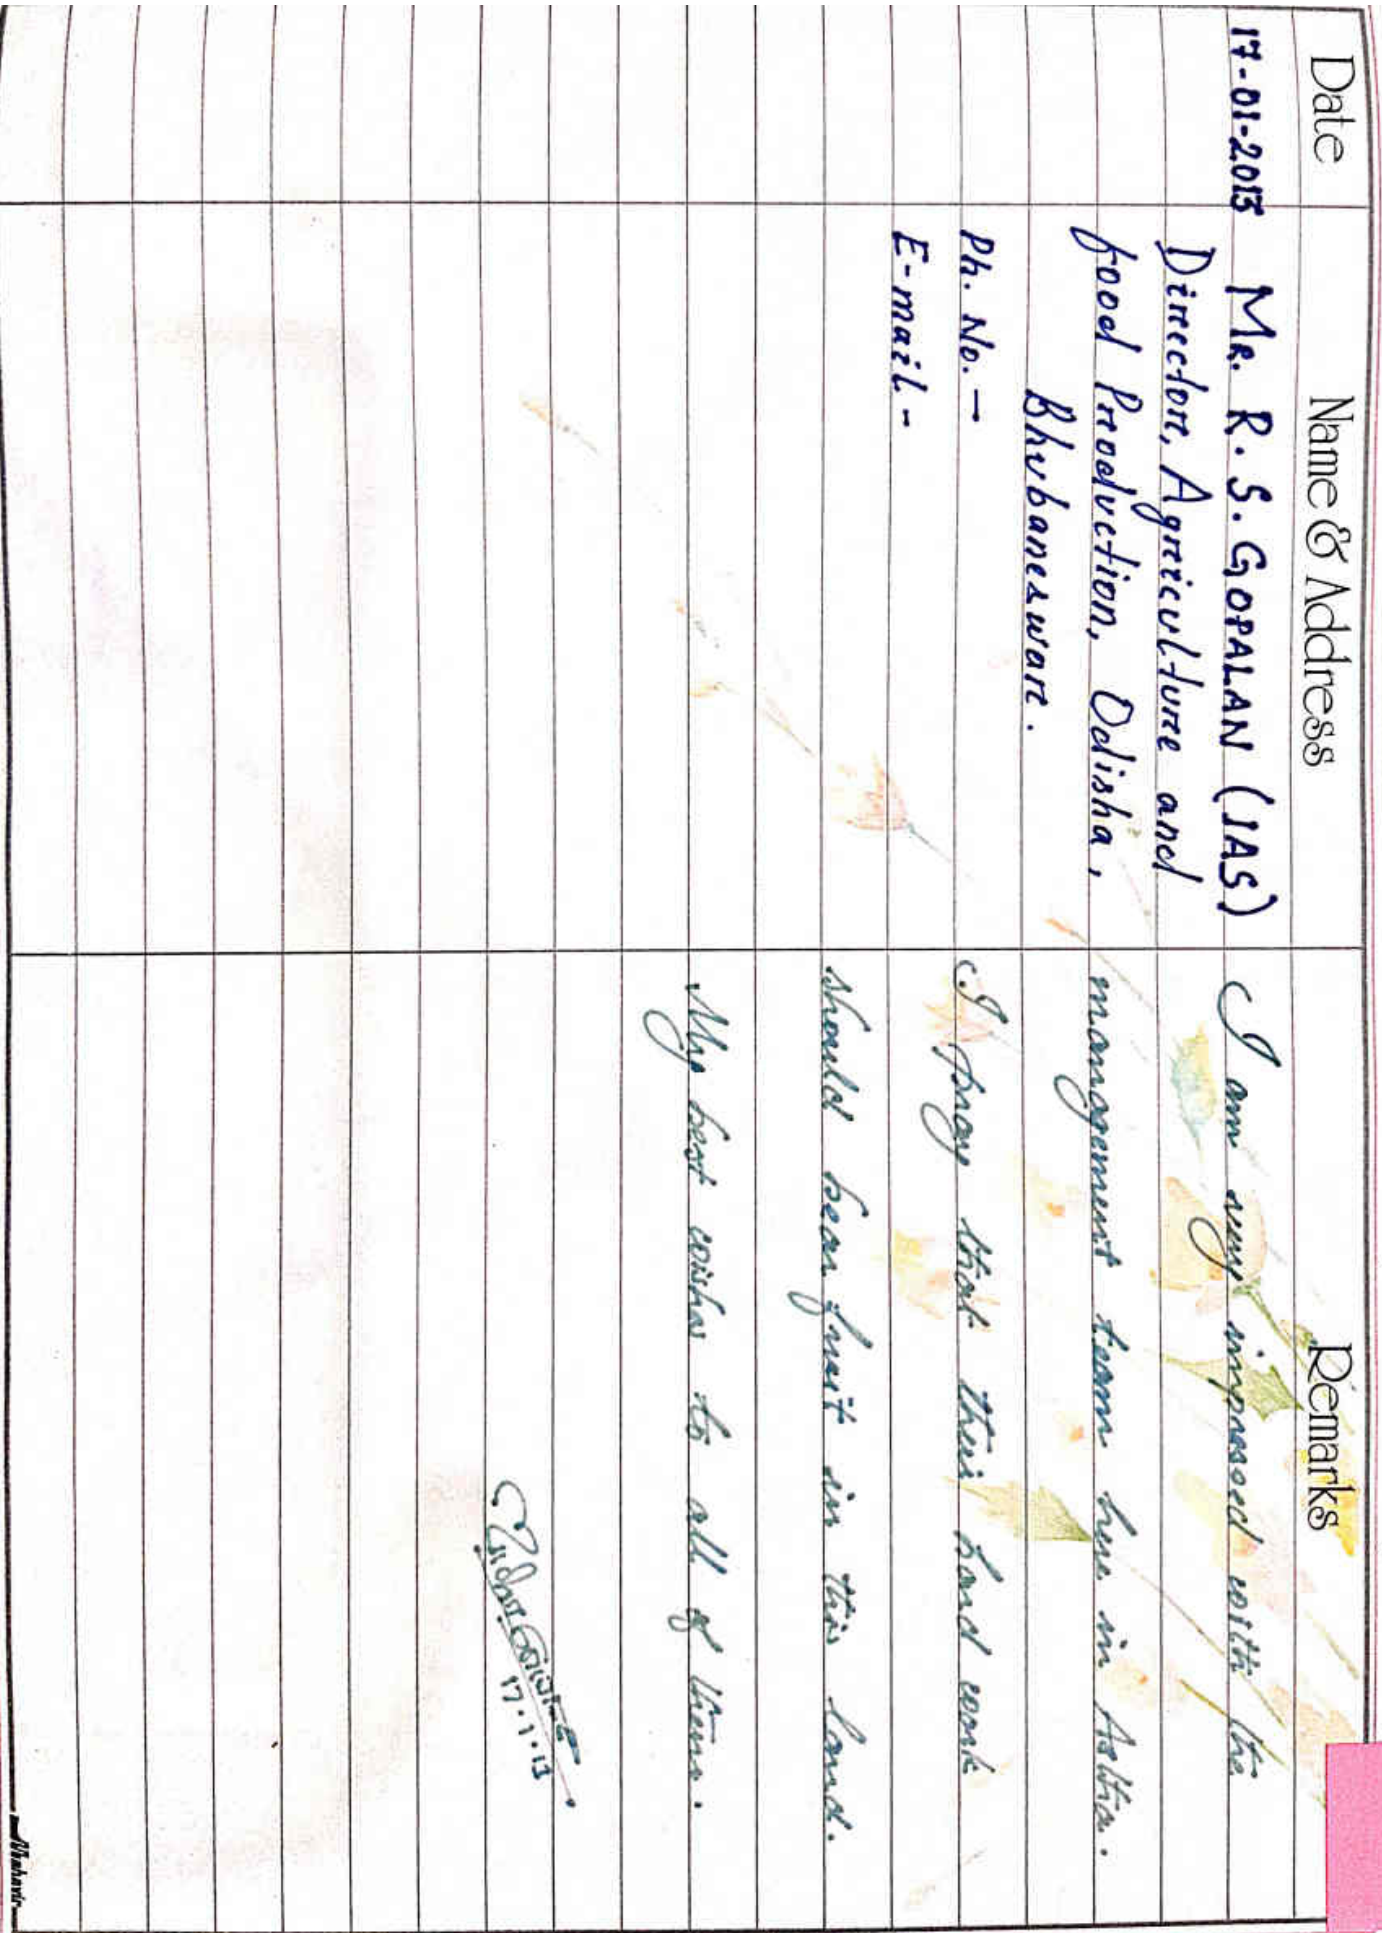 Date Name & Address Remarks
17-01-2013 MR. R. S. GOPALAN (IAS)
Director, Agriculture and
food Production, Odisha,
Bhubaneswar.
Ph. No. -
E-mail -
I am very impressed with the
mangement team here in
I pray that their hard work
should bear fruit in this land.
My best wishes to all of them.
17.1.13
Mahavir